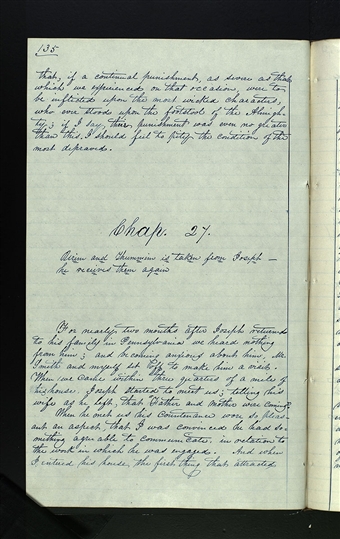 135
that, if a continual punishment, as severe as that
which we experienced on that occasion, were to
be inflicted upon the most wicked characters,
who ever stood upon the footstool of the Almigh-
ty; if I say, their punishment was even no greater
than this, I should feel to pity the condition of the
most depraved.
Chap. 27.
Urim and Thummim is taken from Joseph —
he receives them again
For nearly two months after Joseph returned
to his family in Pennsylvania we heard nothing
from him; and becoming anxious about him, Mr.
Smith and myself set off to make him a visit.
When we came within three quarters of a mile of
his house, Joseph started to meet us; telling his
wife as he left, that Father and Mother was coming.
When he met us his Countenance wore so pleas-
ant an aspect, that I was convinced he had so-
mething agreeable to communicate, in relation to
the work in which he was engaged. And when
I entered his house, the first thing that attracted